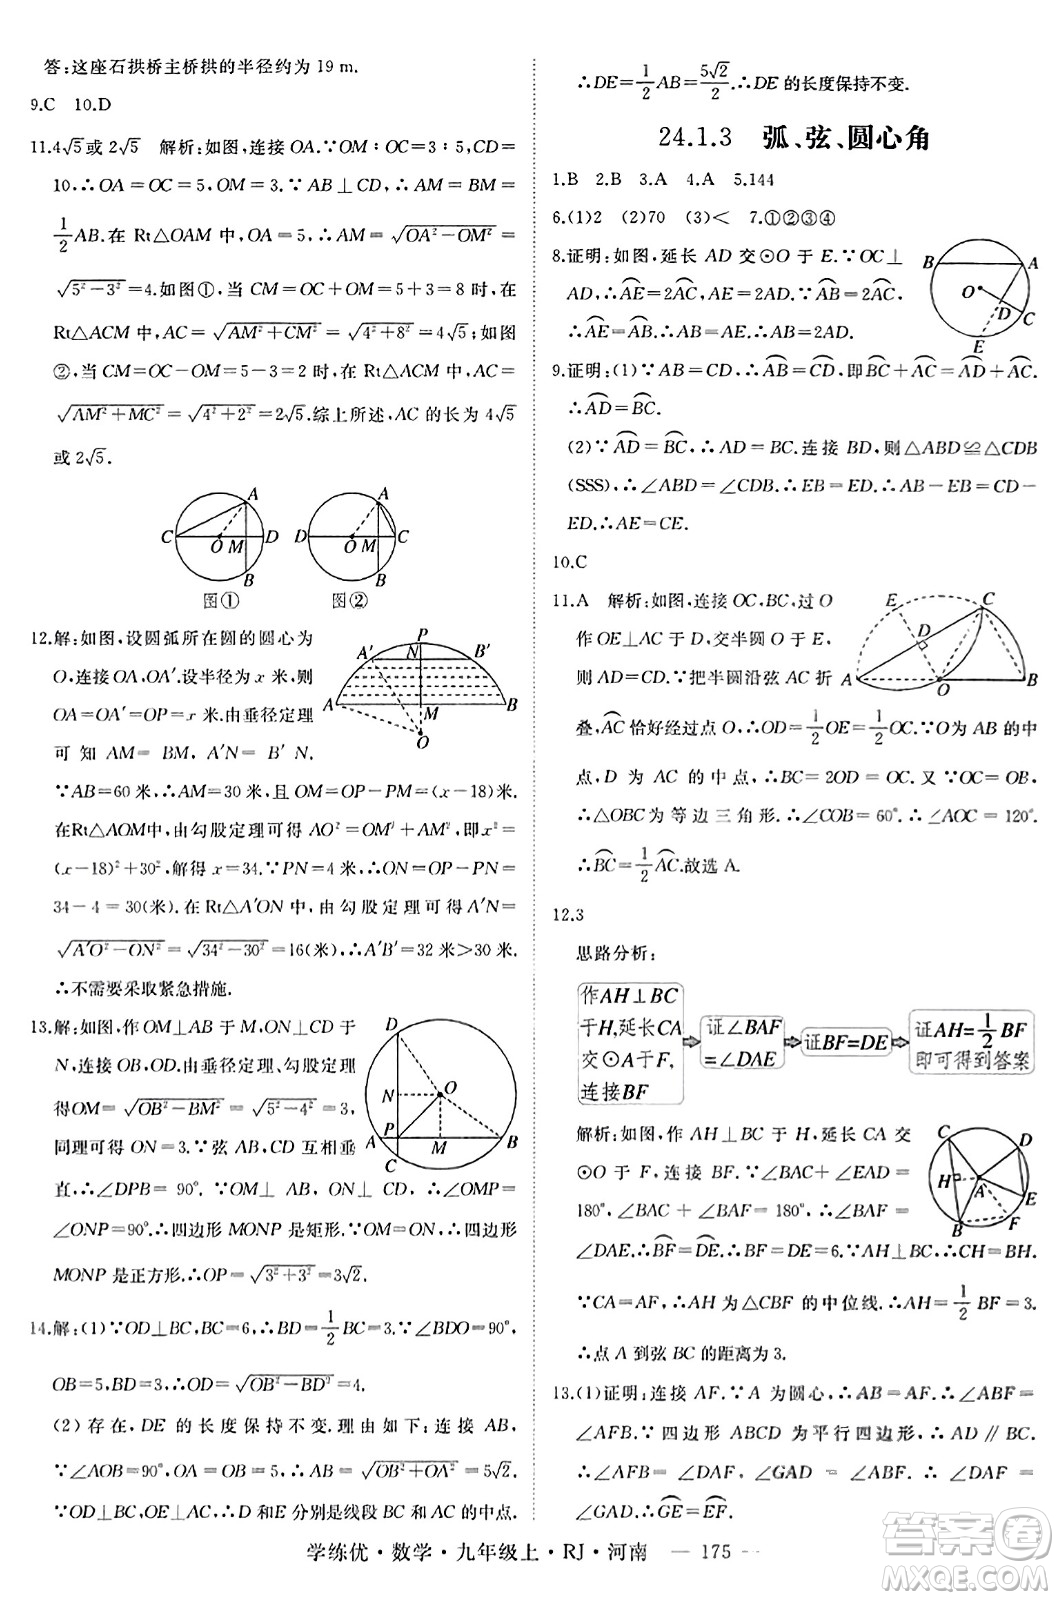 答:这座石拱桥主桥拱的半径约为19 m.
9.C 10.D
11.4√5或2√5 解析:如图,连接OA.∵OM∶OC=3∶5,CD=
10,∴OA=OC=5,OM=3.∵AB⊥CD,∴AM=BM=
1/2AB.在Rt△OAM中,OA=5,∴AM=√(OA²-OM²)=
√(5²-3²)=4.如图①,当CM=OC+OM=5+3=8时,在
Rt△ACM中,AC=√(AM²+CM²)=√(4²+8²)=4√5;如图
②,当CM=OC-OM=5-3=2时,在Rt△ACM中,AC=
√(AM²+MC²)=√(4²+2²)=2√5.综上所述,AC的长为4√5
或2√5.
A A
C O M D D O M C
B B
图① 图②
12.解:如图,设圆弧所在圆的圆心为
O,连接OA,OA′.设半径为x米,则
OA=OA′=OP=x米.由垂径定理
可知AM=BM,A′N=B′N.
∵AB=60米,∴AM=30米,且OM=OP-PM=(x-18)米.
在Rt△AOM中,由勾股定理可得AO²=OM²+AM²,即x²
=(x-18)²+30²,解得x=34.∵PN=4米,∴ON=OP-PN=
34-4=30(米).在Rt△A′ON中,由勾股定理可得A′N=
√(A′O²-ON²)=√(34²-30²)=16(米),∴A′B′=32米>30米.
∴不需要采取紧急措施.
P
A′ N B′
A M B
O
13.解:如图,作OM⊥AB于M,ON⊥CD于
N,连接OB,OP.由垂径定理、勾股定理
得OM=√(OB²-BM²)=√(5²-4²)=3,
同理可得ON=3.∵弦AB,CD互相垂
直,∴∠DPB=90°.∵OM⊥AB,ON⊥CD,∴∠OMP=
∠ONP=90°.∴四边形MONP是矩形.∵OM=ON,∴四边形
MONP是正方形.∴OP=√(3²+3²)=3√2.
D
N O
A P M B
C
14.解:(1)∵OD⊥BC,BC=6,∴BD=1/2BC=3.∵∠BDO=90°,
OB=5,BD=3,∴OD=√(OB²-BD²)=4.
(2)存在,DE的长度保持不变.理由如下:连接AB,
∵∠AOB=90°,OA=OB=5,∴AB=√(OB²+OA²)=5√2.
∵OD⊥BC,OE⊥AC,∴D和E分别是线段BC和AC的中点.
∴DE=1/2AB=5√2/2.∴DE的长度保持不变.
24.1.3 弧、弦、圆心角
1.B 2.B 3.A 4.A 5.144
6.(1)2 (2)70 (3)< 7.①②③④
8.证明:如图,延长AD交⊙O于E.∵OC⊥
AD,∴⌒AE=2⌒AC,AE=2AD.∵⌒AB=2⌒AC,
∴⌒AE=⌒AB.∴AB=AE.∴AB=2AD.
B A
O D C
E
9.证明:(1)∵AB=CD,∴⌒AB=⌒CD,即⌒BC+⌒AC=⌒AD+⌒AC.
∴⌒AD=⌒BC.
(2)∵⌒AD=⌒BC,∴AD=BC.连接BD,则△ABD≌△CDB
(SSS),∴∠ABD=∠CDB.∴EB=ED.∴AB-EB=CD-
ED.∴AE=CE.
10.C
11.A 解析:如图,连接OC,BC,过O
作OE⊥AC于D,交半圆O于E,
则AD=CD.∵把半圆沿弦AC折
叠,⌒AC恰好经过点O,∴OD=1/2OE=1/2OC.∵O为AB的中
点,D为AC的中点,∴BC=2OD=OC.又∵OC=OB,
∴△OBC为等边三角形.∴∠COB=60°.∴∠AOC=120°.
∴⌒BC=1/2⌒AC.故选A.
E C
D
A O B
12.3
思路分析:
作AH⊥BC
于H,延长CA
交⊙A于F,
连接BF
证∠BAF
=∠DAE
证BF=DE
证AH=1/2BF
即可得到答案
解析:如图,作AH⊥BC于H,延长CA交
⊙O于F,连接BF.∵∠BAC+∠EAD=
180°,∠BAC+∠BAF=180°,∴∠DAE=
∠BAF.∴⌒BF=⌒DE.∴BF=DE=6.∵AH⊥BC,∴CH=BH.
∵CA=AF,∴AH为△CBF的中位线.∴AH=1/2BF=3.
∴点A到弦BC的距离为3.
C D
H A E
B F
13.(1)证明:连接AF.∵A为圆心,∴AB=AF.∴∠ABF=
∠AFB.∵四边形ABCD为平行四边形,∴AD∥BC.
∴∠AFB=∠DAF,∠GAD=∠ABF.∴∠DAF=
∠GAD.∴⌒GE=⌒EF.
学练优·数学·九年级上·RJ·河南 — 175 —
答案卷
MXQE.COM